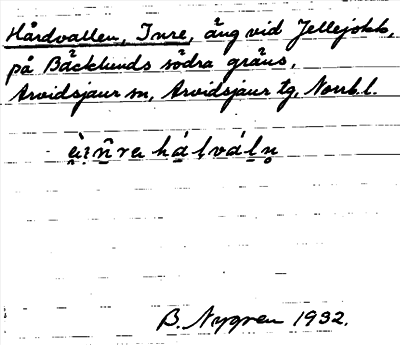 Hårdvallen, Inre, äng vid Jellejokk,
på Bäcklunds södra gräns,
Arvidsjaur sn, Arvidsjaur tg, Norrb. l.
B. Nygren 1932.